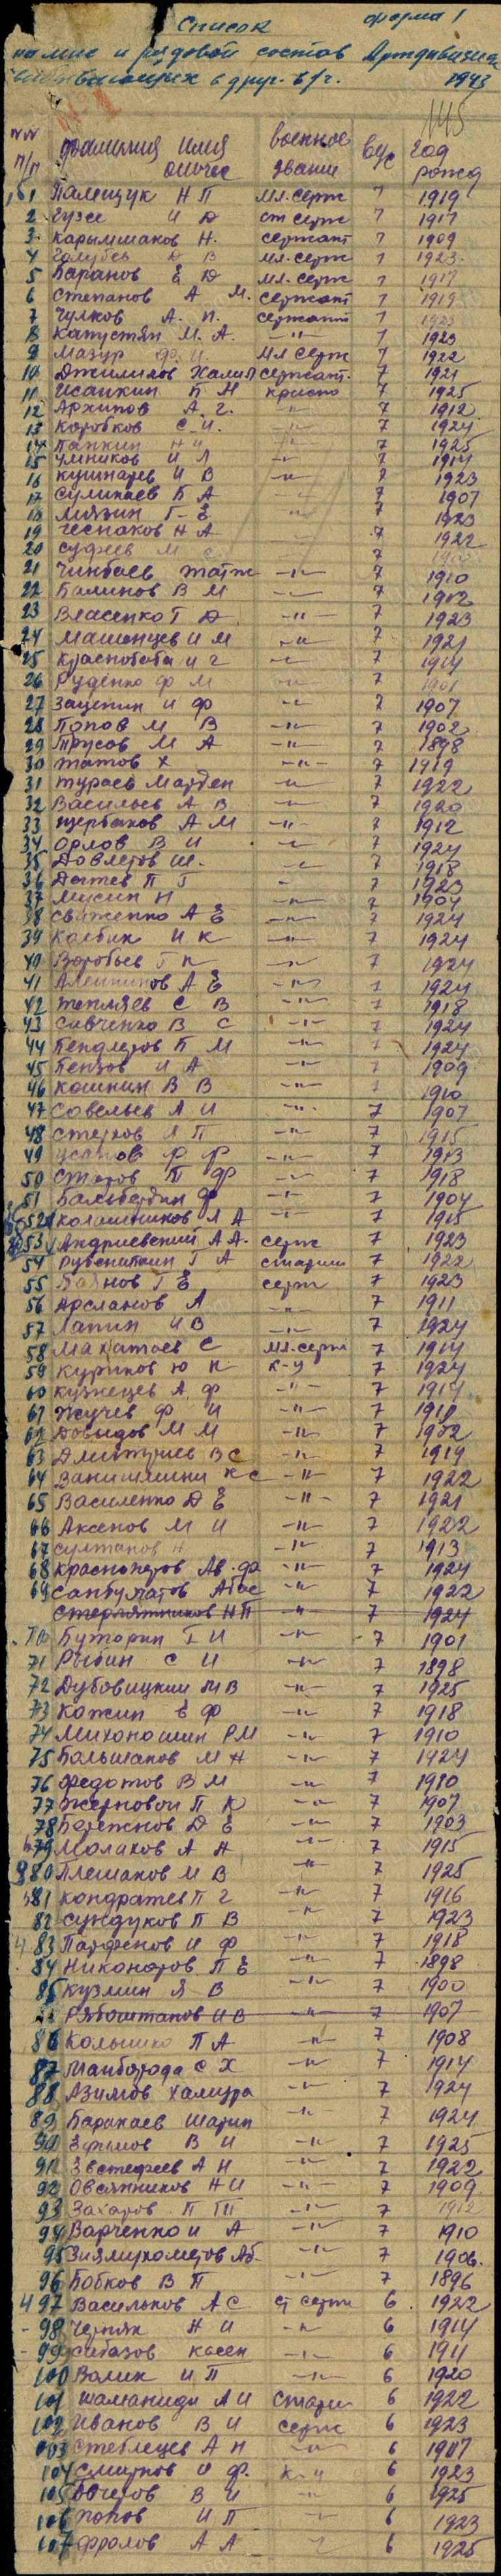 Список форма 1
на млс и рядовой состав
в друг. в/г. 1943
№1 145
№№ п/п фамилия имя отчес военное звание вус год рожд
1 Памещук Н П мл. серж 7 1919
2 Гузее И Д ст серж 7 1917
3 Карымшаков Н. сержант 7 1909
4 Голубев В мл. серж 7 1923
5 Баранов Е Д мл. серж 7 1917
6 Степанов А М. сержант 7 1919
7 Чулков А. П. сержант 7 1923
8 Капустян М. А. -"- 7 1923
9 Мазур Ф И. мл серж 7 1922
10 Джилилов Халил сержант. 7 1921
11 Исаикин П М красно 7 1925
12 Архипов А. Г. -"- 7 1912
13 Коробков С. И. -"- 7 1924
14 Панкин Н И -"- 7 1925
15 Умников И Л -"- 7 1914
16 Кушнарев И В -"- 7 1923
17 Суликаев Б А -"- 7 1907
18 Милзин Г Е -"- 7 1923
19 Чеснаков Н А 7 1922
20 Суфеев М С 7
21 Чинбаев Жатж -"- 7 1910
22 Балинов В М -"- 7 1912
23 Власенко Г Д -"- 7 1923
24 Машенцев И М -"- 7 1921
25 Краснобаба И Г -"- 7 1914
26 Руденко Ф М -"- 7 1901
27 Зацепин И Ф -"- 7 1907
28 Попов М В -"- 7 1902
29 Трусов М А -"- 7 1898
30 Татов Х -"- 7 1919
31 Тураев Марден -"- 7 1922
32 Васильев А В -"- 7 1920
33 Щербаков А М -"- 7 1912
34 Орлов В И -"- 7 1924
35 Довлетов Ш. -"- 7 1918
36 Дотев П Г - 7 1923
37 Мусин Н -"- 7 1904
38 Свиженко А Е -"- 7 1924
39 Колбик И К -"- 7 1924
40 Воробьев Г П -"- 7 1924
41 Алейников А Е -"- 7 1924
42 Тепляев С В -"- 7 1918
43 Савченко В С -"- 7 1924
44 Бендлетов П М -"- 7 1924
45 Пензов И А -"- 7 1909
46 Кошкин В В -"- 7 1910
47 Савельев А И -"- 7 1907
48 Стерхов Я П -"- 7 1915
49 Усанов Ф Ф -"- 7 1913
50 Статов П Ф -"- 7 1918
51 Бальбердин Ф -"- 7 1904
52 Колашников А А -"- 7 1915
53 Андриевский А А. серж 7 1923
54 Рубениткин Г А старши 7 1922
55 Баянов Г Е серж 7 1923
56 Арсланов А -"- 7 1911
57 Лапин И В -"- 7 1924
58 Макатаев С мл. серж 7 1914
59 Куриков Ю Н к-ц 7 1924
60 Кузнецев А Ф -"- 7 1914
61 Жучев Ф И -"- 7 1918
62 Довыдов М М -"- 7 1902
63 Дмитриев В С -"- 7 1919
64 Ванишкини К С -"- 7 1922
65 Василенко Д Е -"- 7 1921
66 Аксенов М И -"- 7 1922
67 Султанов Н -"- 7 1913
68 Краснопёров Ав. Фа -"- 7 1924
69 Санбулатов Абас -"- 7 1922
Стерлятников Н П -"- 7 1924
70 Буторин Г И -"- 7 1901
71 Рыбин С И -"- 7 1898
72 Дубовицкий М В -"- 7 1925
73 Кожин Е Ф -"- 7 1918
74 Михоношин Р М -"- 7 1910
75 Большаков М Н -"- 7 1924
76 Федотов В М -"- 7 1910
77 Жерновои П К -"- 7 1907
78 Бережнов Д Е -"- 7 1903
79 Молихов А Н -"- 7 1915
80 Плешаков И В -"- 7 1925
81 Кондратев П Г -"- 7 1916
82 Сундуков П В -"- 7 1923
83 Парфенов И Ф -"- 7 1918
84 Никоноров П Е -"- 7 1898
85 Кузмин Я В -"- 7 1900
Рябоштанов И В -"- 7 1907
86 Колышко П А -"- 7 1908
87 Манборода С Х -"- 7 1914
88 Азимов Хамзра -"- 7 1924
89 Баракаев Шарип -"- 7 1924
90 Ефимов В И -"- 7 1925
91 Евстефеев А Н -"- 7 1922
92 Овсянников Н И -"- 7 1909
93 Захаров П П -"- 7 1912
94 Варченко И А -"- 7 1910
95 Зиялиукометов Аб- -"- 7 1906.
96 Бобков В П -"- 7 1896
97 Васильков А С ст серж 6 1922
98 Черняк Н И -"- 6 1914
99 Сибазов Касен -"- 6 1911
100 Волик И П -"- 6 1920
101 Шаманиди А И старш 6 1922
102 Иванов В И серж 6 1923
103 Стеблецев А Н -"- 6 1907
104 Смирнов И Ф. к-ц 6 1923
105 Овчеров В И -"- 6 1925
106 Попов И П -"- 6 1923
107 Фролов А А -"- 6 1925